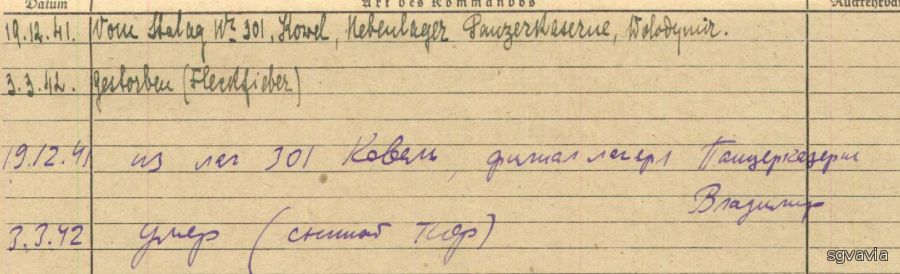 Datum Art des Kommandos
19.12.41. Vom Stalag Nr. 301, Kowel, Nebenlager Panzerkaserne, Wolodymir.
3.3.42. gestorben (Fleckfieber)
19.12.41 из лаг 301 Ковель, филиал лагеря Панцерказерне
Владимир
3.3.42 умер (сыпной тиф)
sgvavia